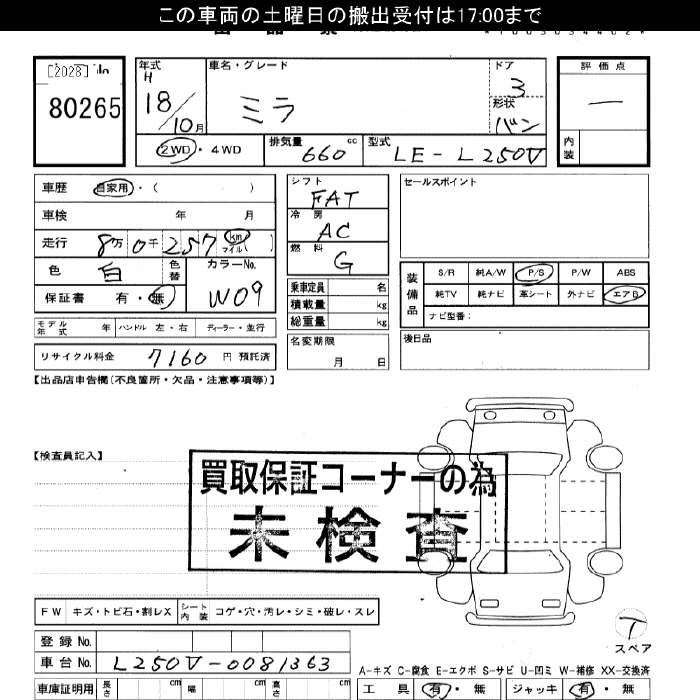 この車両の土曜日の搬出受付は17:00まで
[2028] No
80265
年式
H
18/10月
車名・グレード
ミラ
ドア
3
形状
バン
評価点
—
内装
2WD・4WD
排気量
660 cc
型式
LE-L250V
車歴 自家用・( )
車検 年 月
走行 8万0千257 km マイル( )
色 白
色替
カラーNo.
W09
保証書 有・無
モデル年式 年 ハンドル 左・右 ディーラー・並行
リサイクル料金 7160 円 預託済
シフト
FAT
冷房
AC
燃料
G
乗車定員 名
積載量 kg
総重量 kg
名変期限
月 日
セールスポイント
装備品
S/R 純A/W P/S P/W ABS
純TV 純ナビ 革シート 外ナビ エアB
ナビ型番:
後日品
【出品店申告欄(不良箇所・欠品・注意事項等)】
【検査員記入】
買取保証コーナーの為
未検査
FW キズ・トビ石・割レX シート内装 コゲ・穴・汚レ・シミ・破レ・スレ
登録No.
車台No. L250V-0081363
車庫証明用 長さ cm 幅 cm 高さ cm
T
スペア
A-キズ C-腐食 E-エクボ S-サビ U-凹ミ W-補修 XX-交換済
工具 有・無 ジャッキ 有・無